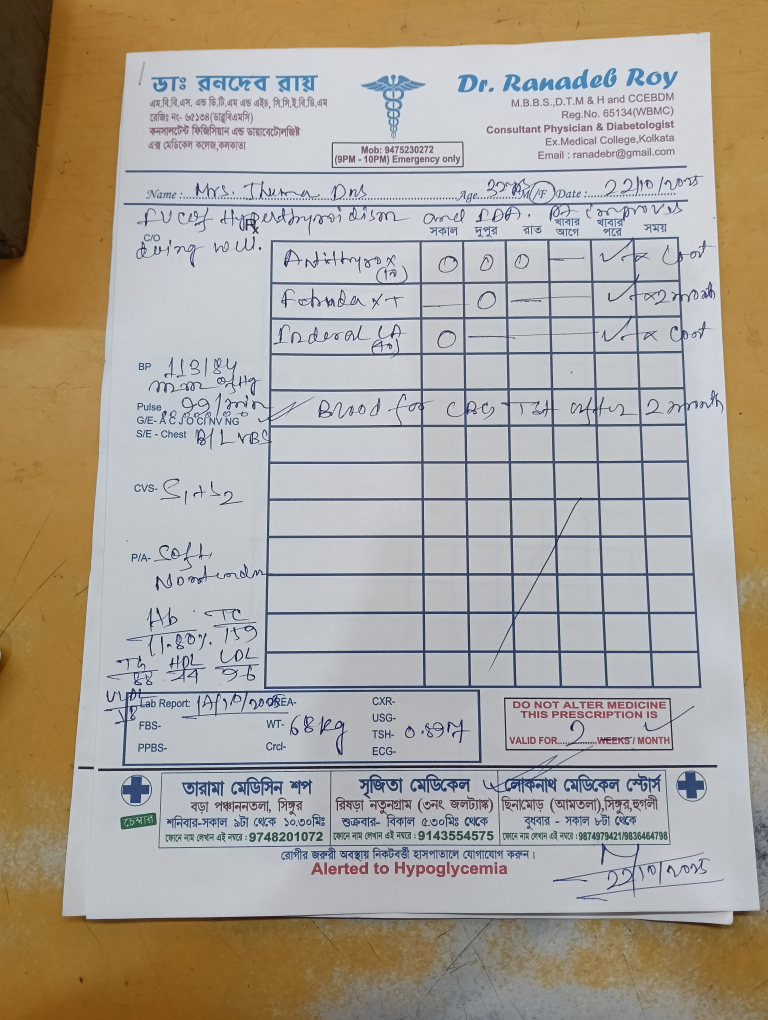 ডাঃ রনদেব রায়
এম.বি.বি.এস. এন্ড ডি.টি.এম এন্ড এইচ, সি.সি.ই.বি.ডি.এম
রেজিঃ নং- ৬৫১৩৪(ডাব্লুবিএমসি)
কনসালটেন্ট ফিজিসিয়ান এন্ড ডায়াবেটোলজিষ্ট
এক্স মেডিকেল কলেজ,কলকাতা
Mob: 9475230272
(9PM - 10PM) Emergency only
Dr. Ranadeb Roy
M.B.B.S.,D.T.M & H and CCEBDM
Reg.No. 65134(WBMC)
Consultant Physician & Diabetologist
Ex.Medical College,Kolkata
Email : ranadebr@gmail.com
Name : Mrs. Das Age M/F Date : 22/10/2025
of Hyperthyroidism and IDA. Pt improves
C/O doing well.
Rx সকাল দুপুর রাত খাবার আগে খাবার পরে সময়
Antithyrox (10) O O O — ✓ x Cont
XT — O — ✓ x 2 month
Inderal LA (40) O — ✓ x Cont
BP 113/84
mm of Hg
Pulse 99/min
Blood for CBC TSH after 2 month
G/E- A C J O Cl NV NG
S/E - Chest B/L VBS
CVS- S1+S2
P/A- Soft
Hb TC
11.80%. 159
TG HDL LDL
88 44 96
VLDL
18
Lab Report: SEA- CXR-
FBS- WT- 68 kg USG-
TSH- 0.897
PPBS- Crcl- ECG-
DO NOT ALTER MEDICINE
THIS PRESCRIPTION IS
VALID FOR 2 WEEKS / MONTH
চেম্বার
তারামা মেডিসিন শপ
বড়া পঞ্চাননতলা, সিঙ্গুর
শনিবার-সকাল ৯টা থেকে ১০.৩০মিঃ
ফোনে নাম লেখান এই নম্বরে : 9748201072
সৃজিতা মেডিকেল
রিষড়া নতুনগ্রাম (৩নং জলট্যাঙ্ক)
শুক্রবার- বিকাল ৫.৩০মিঃ থেকে
ফোনে নাম লেখান এই নম্বরে : 9143554575
লোকনাথ মেডিকেল স্টোর্স
ছিনামোড় (আমতলা),সিঙ্গুর,হুগলী
বুধবার - সকাল ৮টা থেকে
ফোনে নাম লেখান এই নম্বরে : 9874979421/9836464798
রোগীর জরুরী অবস্থায় নিকটবর্ত্তী হাসপাতালে যোগাযোগ করুন।
Alerted to Hypoglycemia
22/10/2025